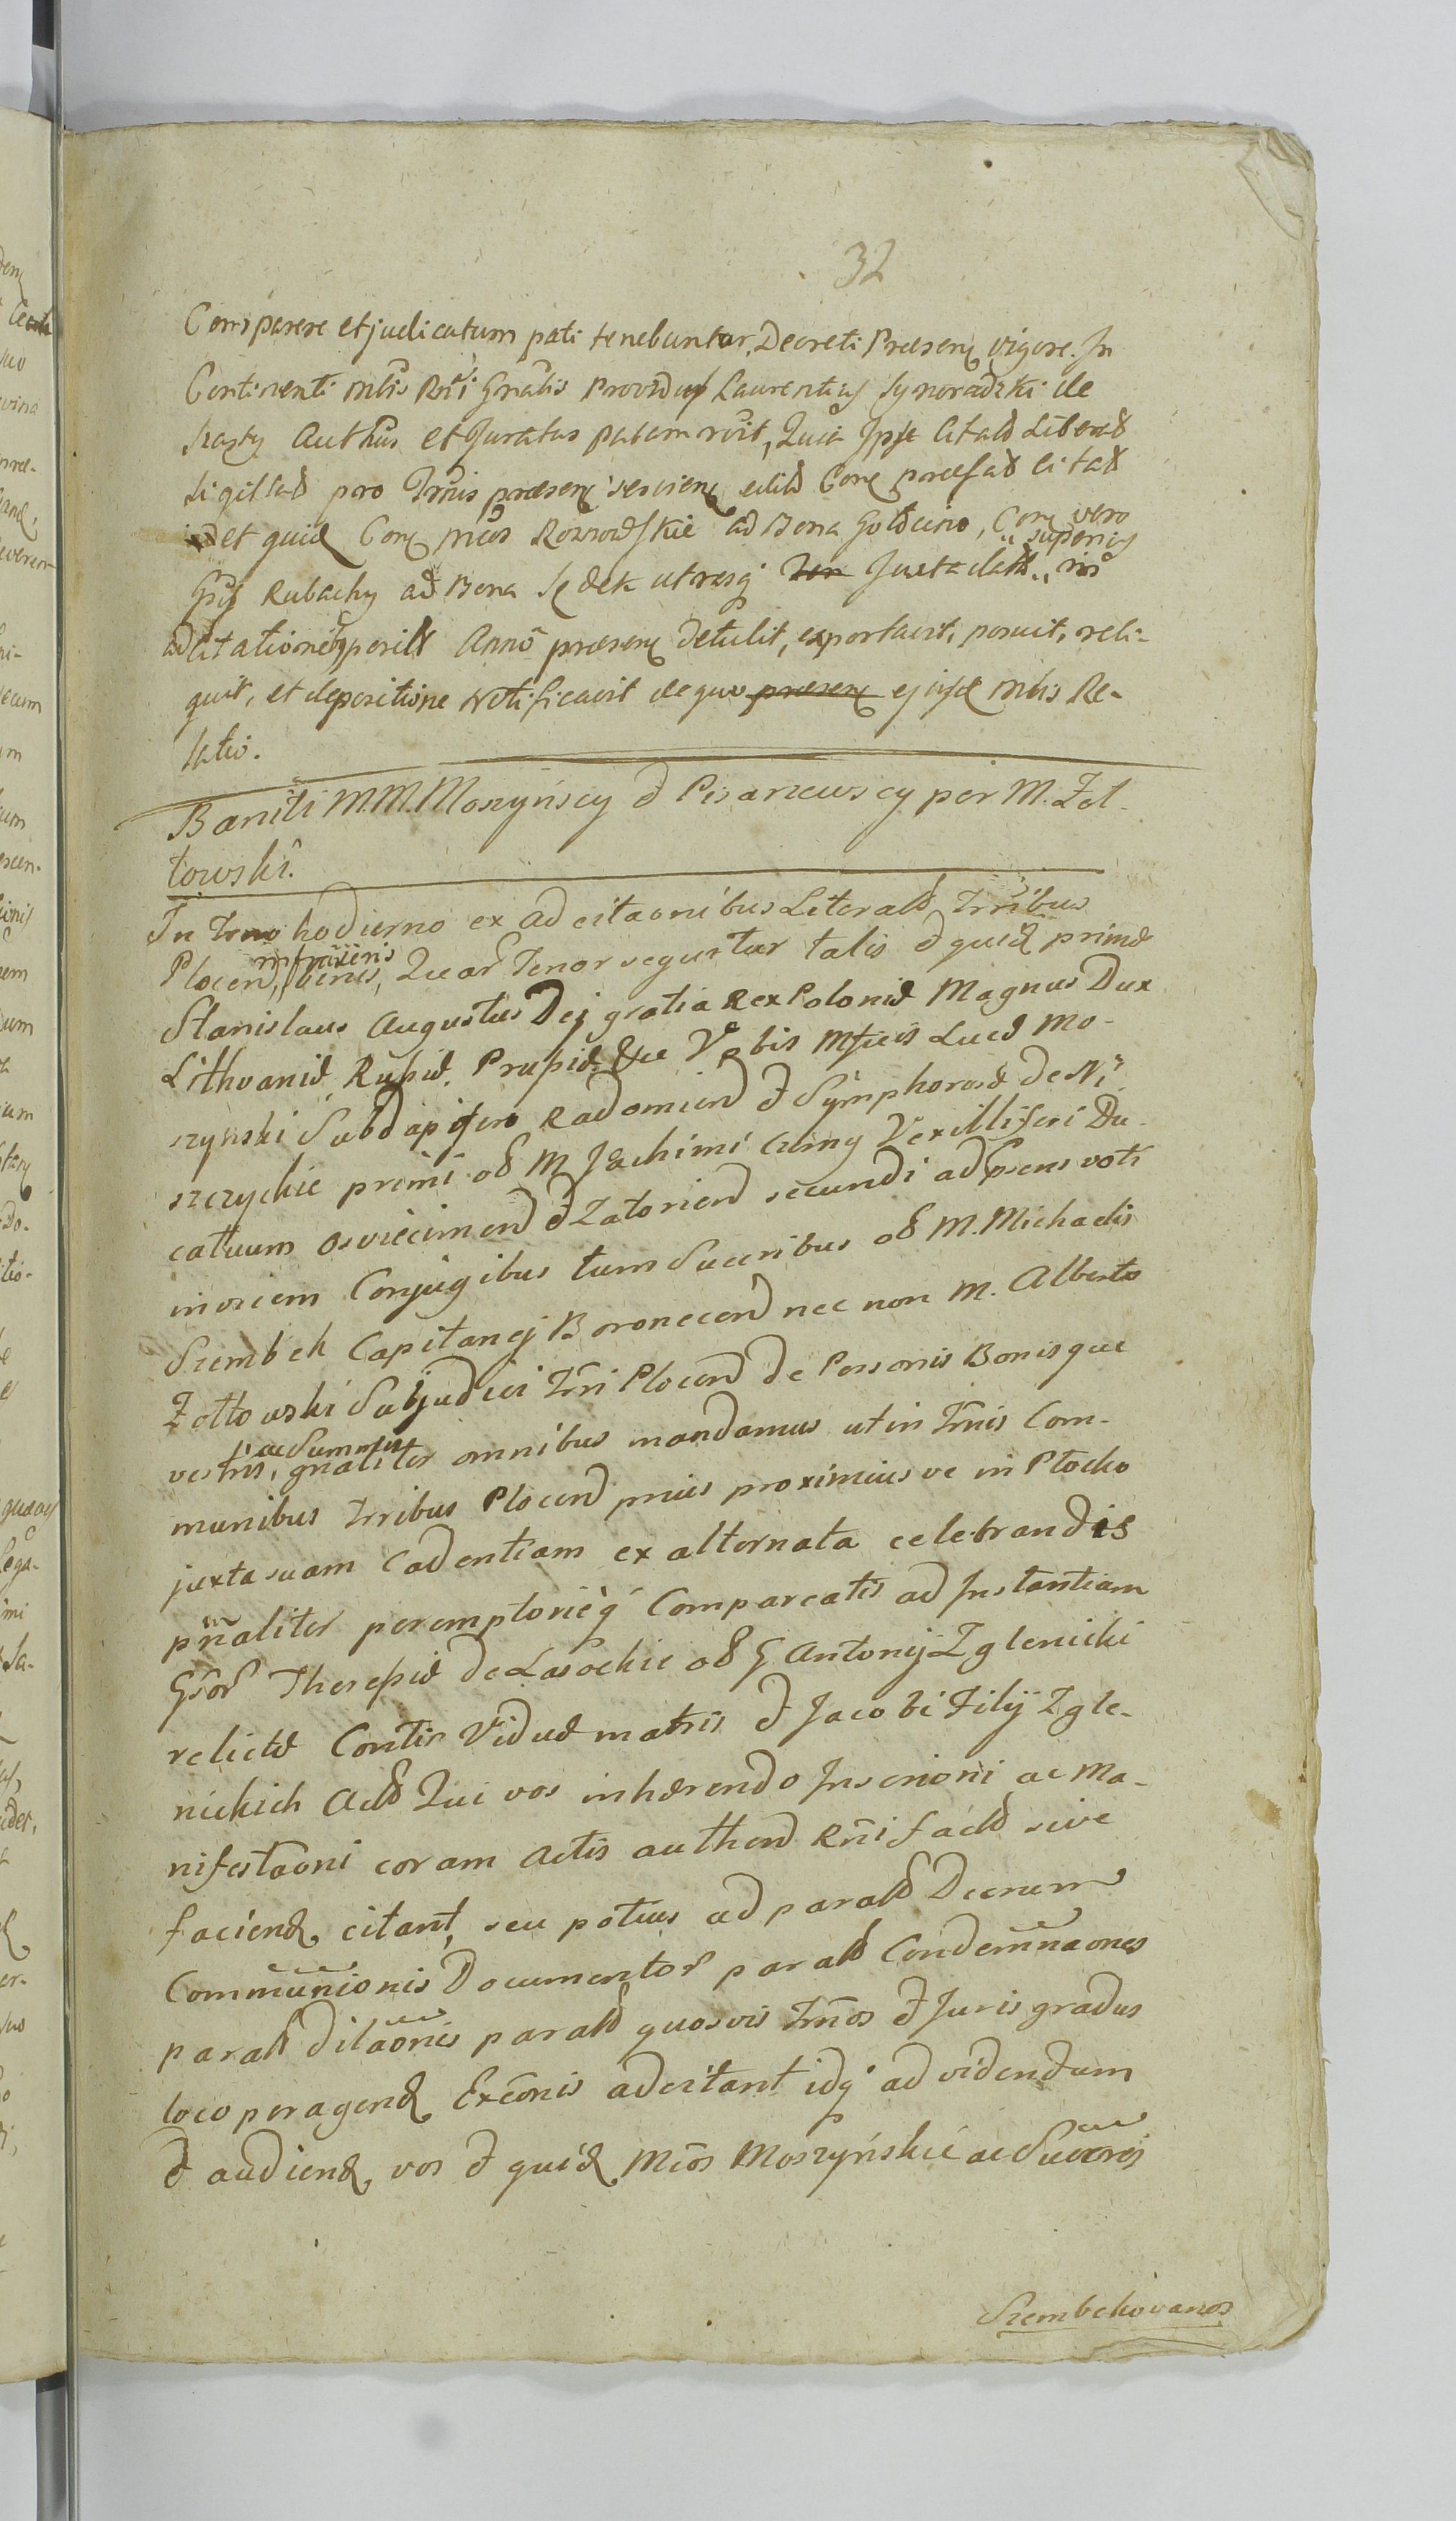 32
Comparere et judicatum pati tenebuntur, Decreti Præsenȩ vigore. In
Continenti Mlis Rñi Gñalis Providus Laurentius Synoradzki de
Authus et Juratus palam rvit, Quia Ipse Citað Literað
Sigillað pro Trmis præsenȩ Conȩ præfað Citað
et quid Conȩ Mcos ad Bona Goldcino, Conȩ vero
superius
Gsos Rubachy ad Bona utrasq Juxta
ad Citationes Anno præsenȩ detulit, exportavit, posuit, reli-
quit, et depositione notificavit de quo præsenȩ ejusd Mlis Re-
latio.
Baniti M.M. Moszyńscy & per M. Zol-
towski.
In Trmo hodierno ex adcitaonibus Literalb Trribus
infraxeris
Plocen, binis, Quar Tenor sequitur talis & quid prima
Stanislaus Augustus Dei gratia Rex Poloniæ Magnus Dux
Lithvaniæ, Rußiæ, Prußiæ &ce Vobis Mficis Lucæ Mo-
szynski Subdapifero Radomien & Symphorosæ de Ni-
szczyckie primi oð M Joachimi Czerny Vexilliferi Du-
catuum Osviecimen & Zatorien secundi adpsens voti
invicem Conjugibus tum Succribus oð M. Michaelis
Szembek Capitanej Boronecen nec non M. Alberto
Zołtowski Subjudici Trri Plocen de Personis Bonisque
ac Summis
vestris, gñaliter omnibus mandamus ut in Trmis Com-
munibus Trribus Plocen prius proximius ve in Płocko
juxta suam Cadentiam ex alternata celebrandis
pñaliter peremptorieq Compareatis ad Instantiam
Gsor Thereßiæ de Lasockie oð G Antonij Zglenicki
relictæ Contis Viduæ matris & Jacobi Filij Zgle-
nickich Acto Qui vos inhærendo Inscrioni ac Ma-
nifestaoni coram Actis authen Rñi facto sive
faciend, citant, seu potius ad parato Decrum
Communionis Documentor parato Condemnaones
parato dilaonis parato quosvis Trmos & Juris gradus
loco peragend Exeonis adcitant idq ad videndum
& audiend, vos & quid Mcos Moszyńskie ac Succres
Szembekovanos